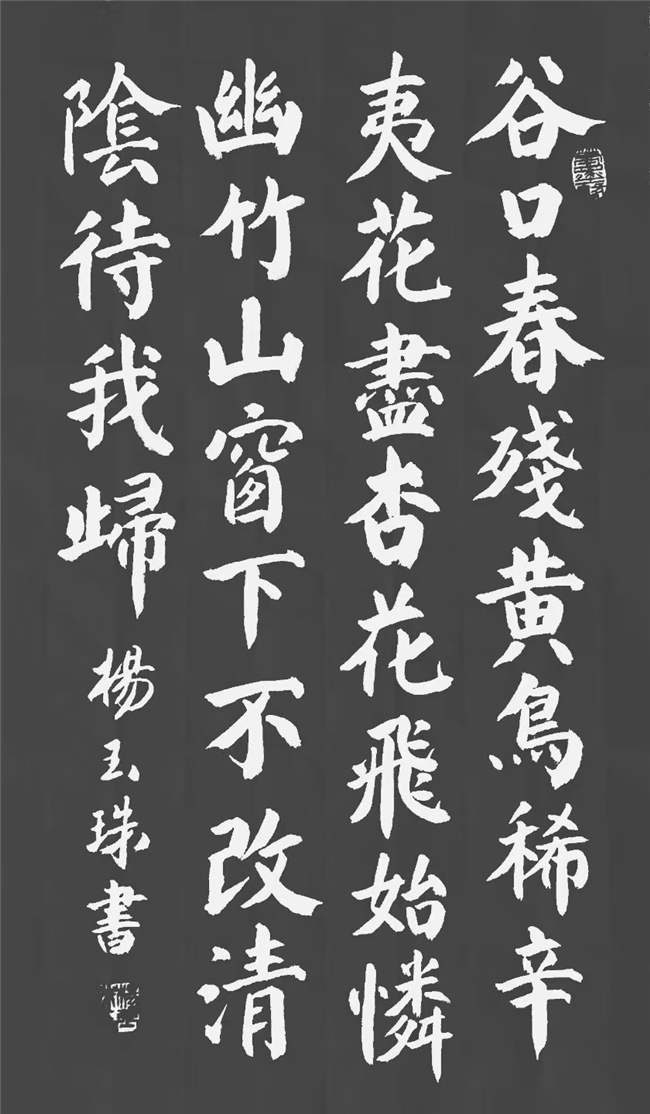 谷口春殘黄鳥稀辛
夷花盡杏花飛始憐
幽竹山窗下不改清
陰待我歸
楊玉珠書